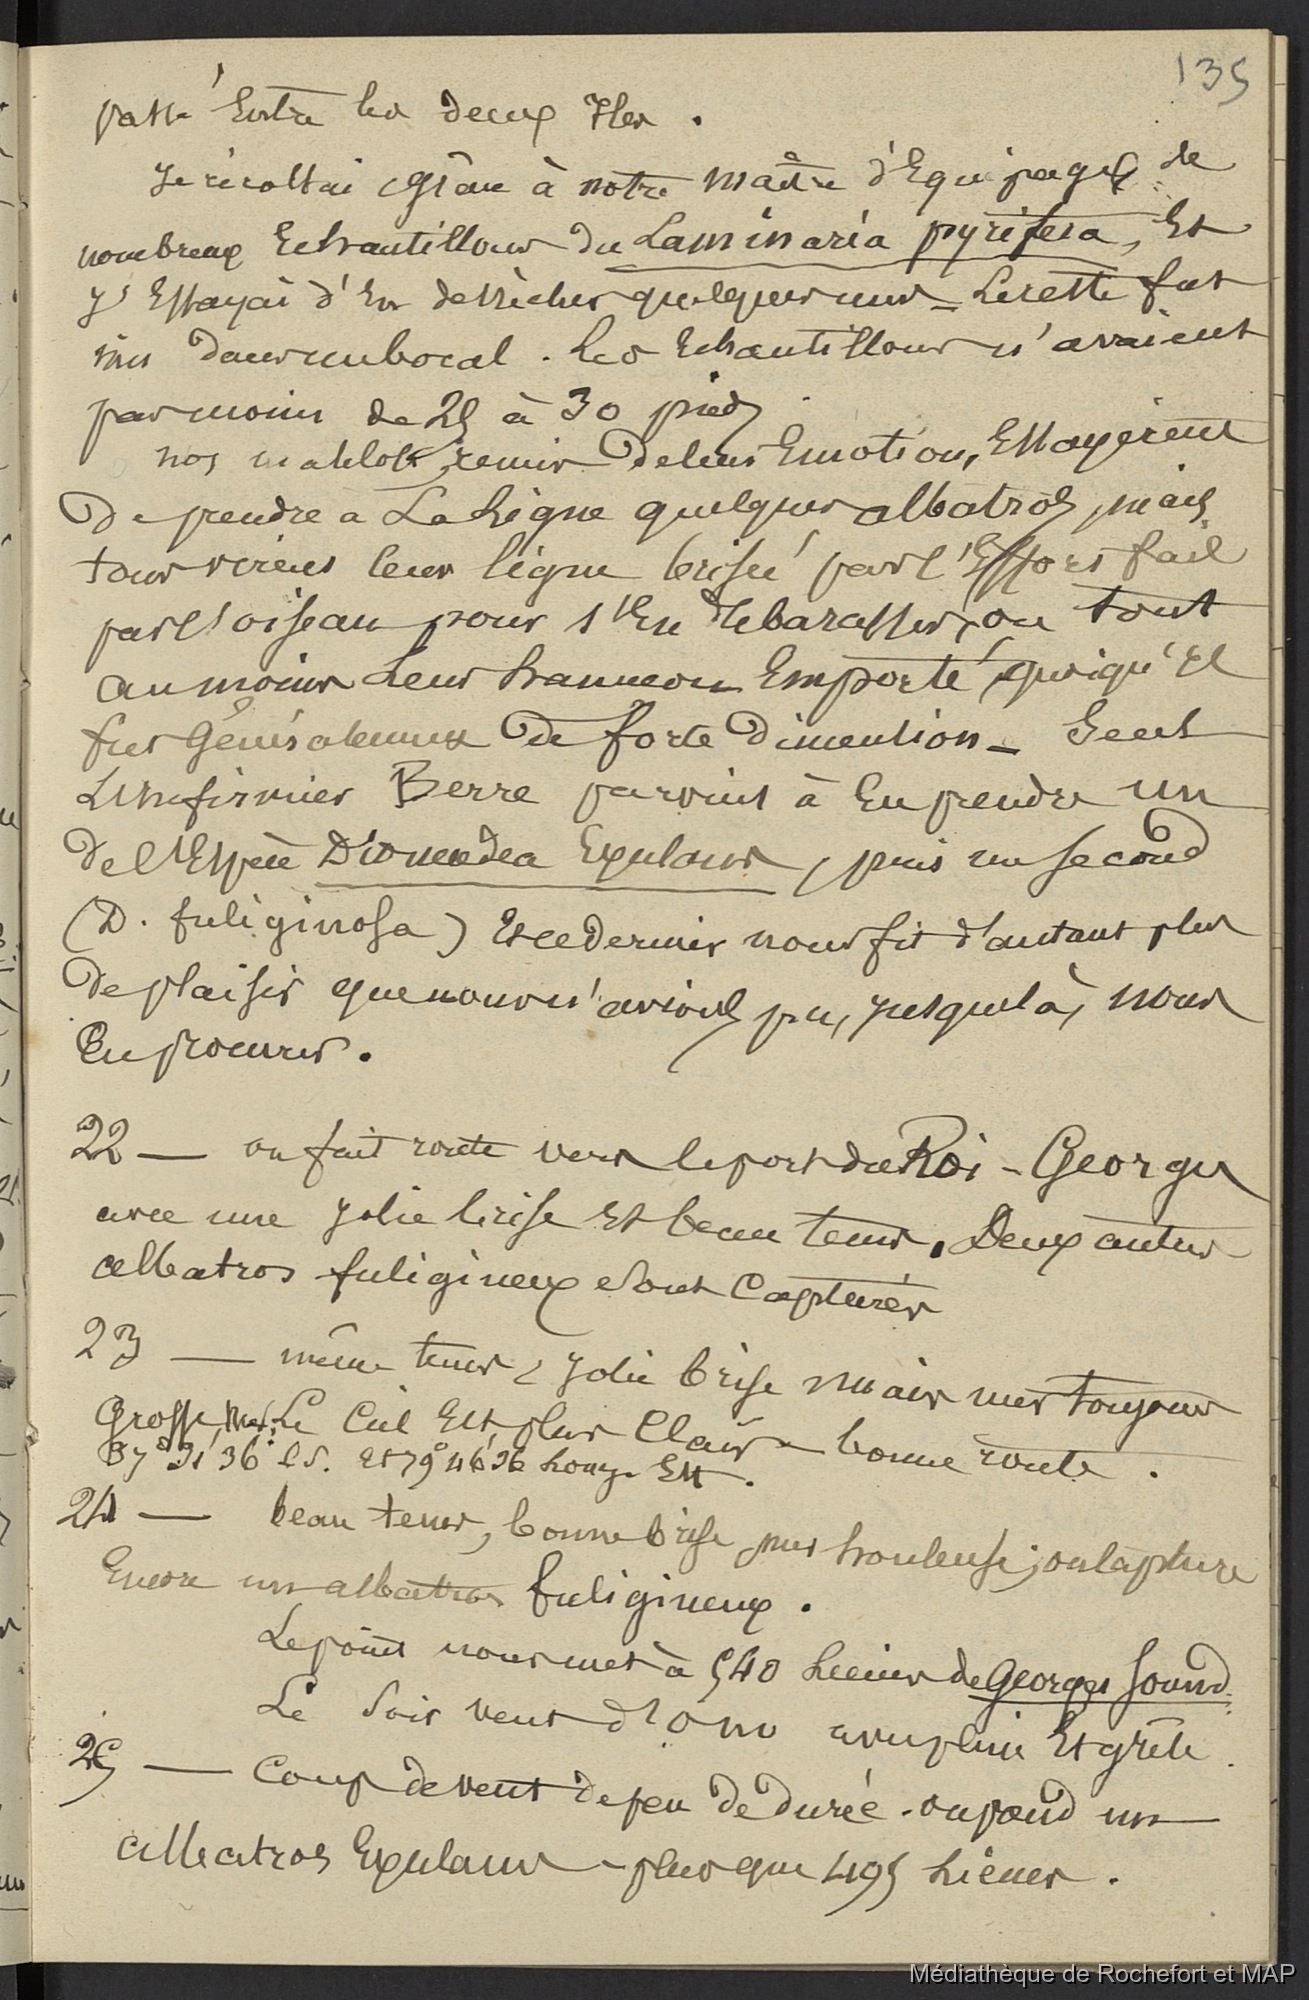 135
passé Entre les deux Iles.
Je récoltai grâce à notre maître d'Equipage de
nombreux Echantillons du Laminaria pyrifera, Et
J'Essayai d'En dessécher quelques uns _ Le reste fut
mis dans un bocal. Les Echantillons n'avaient
pas moins de 25 à 30 pieds
nos matelots, remis de leur Emotion, Essayèrent
De prendre a La Ligne quelques albatros, mais
tous virent leur ligne brisée par l'Effort fait
par l'oiseau pour s'En debarasser, ou tout
au moins Leur hameçon Emporté, quoiqu'il
fut Généralement De forte dimention _ Seul
L'infirmier Berre parvint à En prendre un
De l'Espèce Diomedea Exulans, puis un second
(D. fuliginosa) Et ce dernier nous fit d'autant plus
De plaisir que nous n'avions pu, jusque là, nous
En procurer.
22 — on fait route vers le port du Roi-Georges
avec une jolie brise Et beau tems. Deux autres
albatros fuligineux sont Capturés
23 — même tems, jolie brise mais mer toujours
Grosse, Le Ciel Est plus Clair - bonne route.
37° 31' 36" l S. Et 79° 46' 36 Long. Est.
24 — beau tems, bonne brise, mer houleuse; on capture
Encore un albatros fuligineux.
Le point nous met à 540 Lieues de Georges Sound
Le Soir vent d'ONO avec pluie Et grêle.
25 — Coup de vent de peu De durée - on prend un
albatros Exulans - plus que 495 Lieues.
Médiathèque de Rochefort et MAP